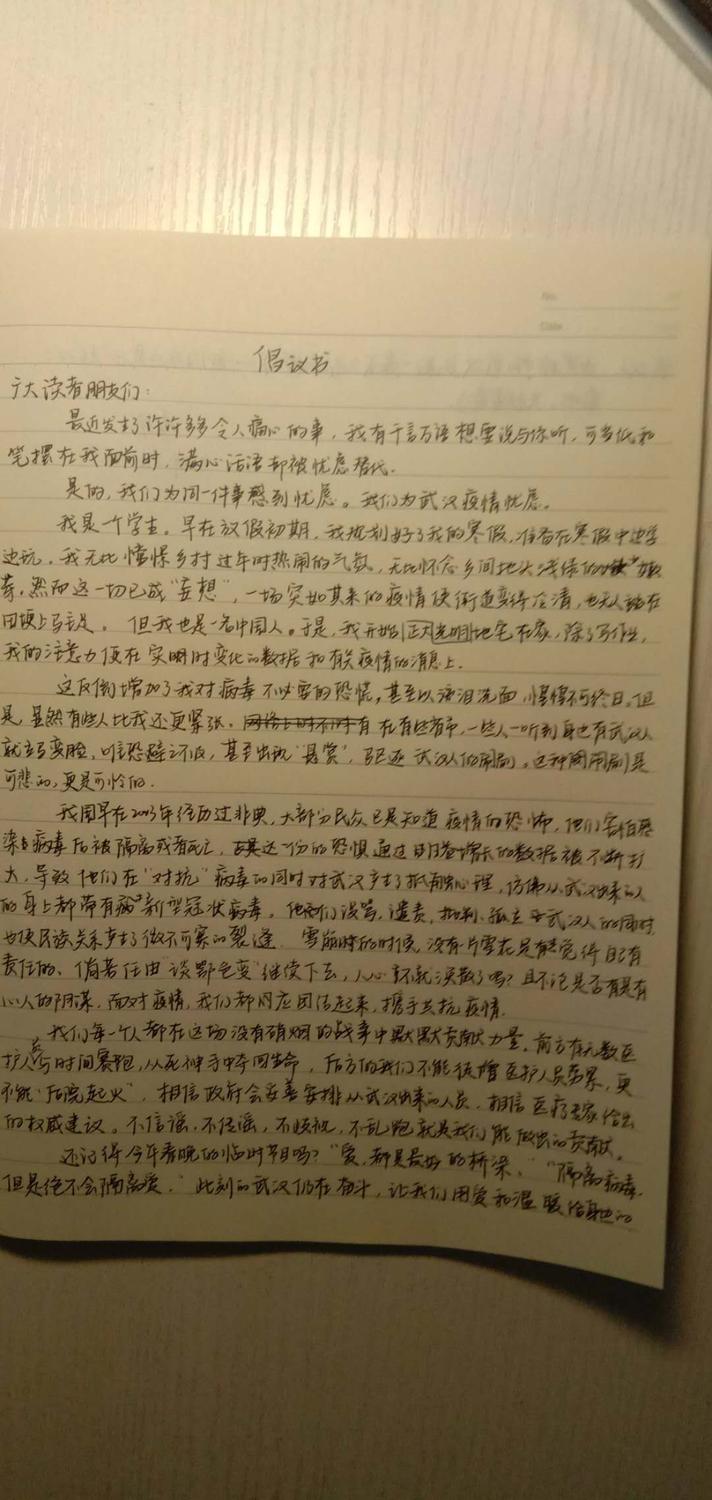 倡议书
广大读者朋友们：
最近发生了许许多多令人痛心的事，我有千言万语想要说与你听，可当纸和
笔摆在我面前时，满心话语却被忧虑替代.
是的，我们为同一件事感到忧虑。我们为武汉疫情忧虑。
我是一个学生。早在放假初期，我规划好了我的寒假，信奋在寒假中边学
边玩。我无比憧憬乡村过年时热闹的气氛，无比怀念乡间地头浅绿的
芽，然而这一切已成“妄想”，一场突如其来的疫情使街道变得冷清，也无人
田埂上。但我也是一名中国人。于是，我开始正大光明地宅在家，除了写作业，
我的注意力便在实时变化的数据和有关疫情的消息上.
这反倒增加了我对病毒不必要的恐慌，甚至以泪洗面，惶惶不可终日。但
是，显然有些人比我还更紧张. 在有些省市，一些人一听到身边有武汉人
就变脸，唯恐避之不及，甚至出现“悬赏”，驱逐武汉人的闹剧。这种闹剧是
可悲的，更是可怜的.
我国早在2003年经历过非典，大部分民众已是知道疫情的恐怖，他们害怕感
染上病毒后被隔离或者死亡，这一份的恐惧通过日增长的数据被不断扩
大，导致他们在“对抗”病毒的同时对武汉产生了抵触心理，仿佛从武汉出来的人
的身上都带有新型冠状病毒。他们谩骂，谴责，批判，孤立武汉人的同时，
也使民族关系产生了微不可察的裂缝. 雪崩的时候，没有一片雪花是能觉得自己有
责任的、倘若任由“谈鄂色变”继续下去，人心就涣散了吗？且不论是否有是有
心人的阴谋，面对疫情，我们都应团结起来，携手共抗疫情.
我们每一个人都在这场没有硝烟的战争中默默贡献力量。前方有无数医
护人员与时间赛跑，从死神手中夺回生命，后方的我们不能徒增医护人员劳累，更
不能“后院起火”，相信政府会妥善安排从武汉出来的人员，相信医疗专家给出
的权威建议。不信谣，不传谣，不歧视，不乱跑就是我们能做出的贡献。
还记得今年春晚的临时节目吗？“爱，都是最好的桥梁、”“隔离病毒，
但是绝不会隔离爱.”此刻的武汉仍在奋斗，让我们用爱和温暖给身边的